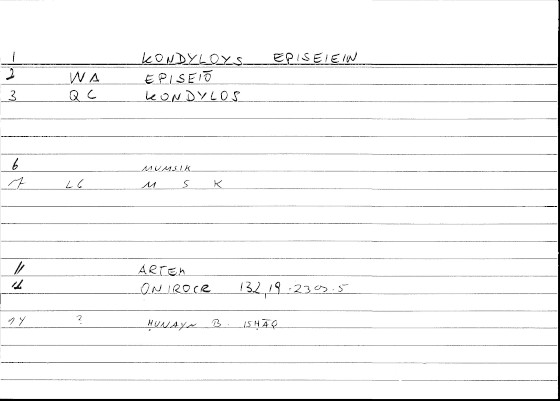 1 KONDYLOYS EPISEIEIN
2 WA EPISEIŌ
3 QC KONDYLOS
6 MUMSIK
7 LC M S K
11 ARTEM
12 ONIROCR 132,19
14 ? ḤUNAYN B. ISḤĀQ